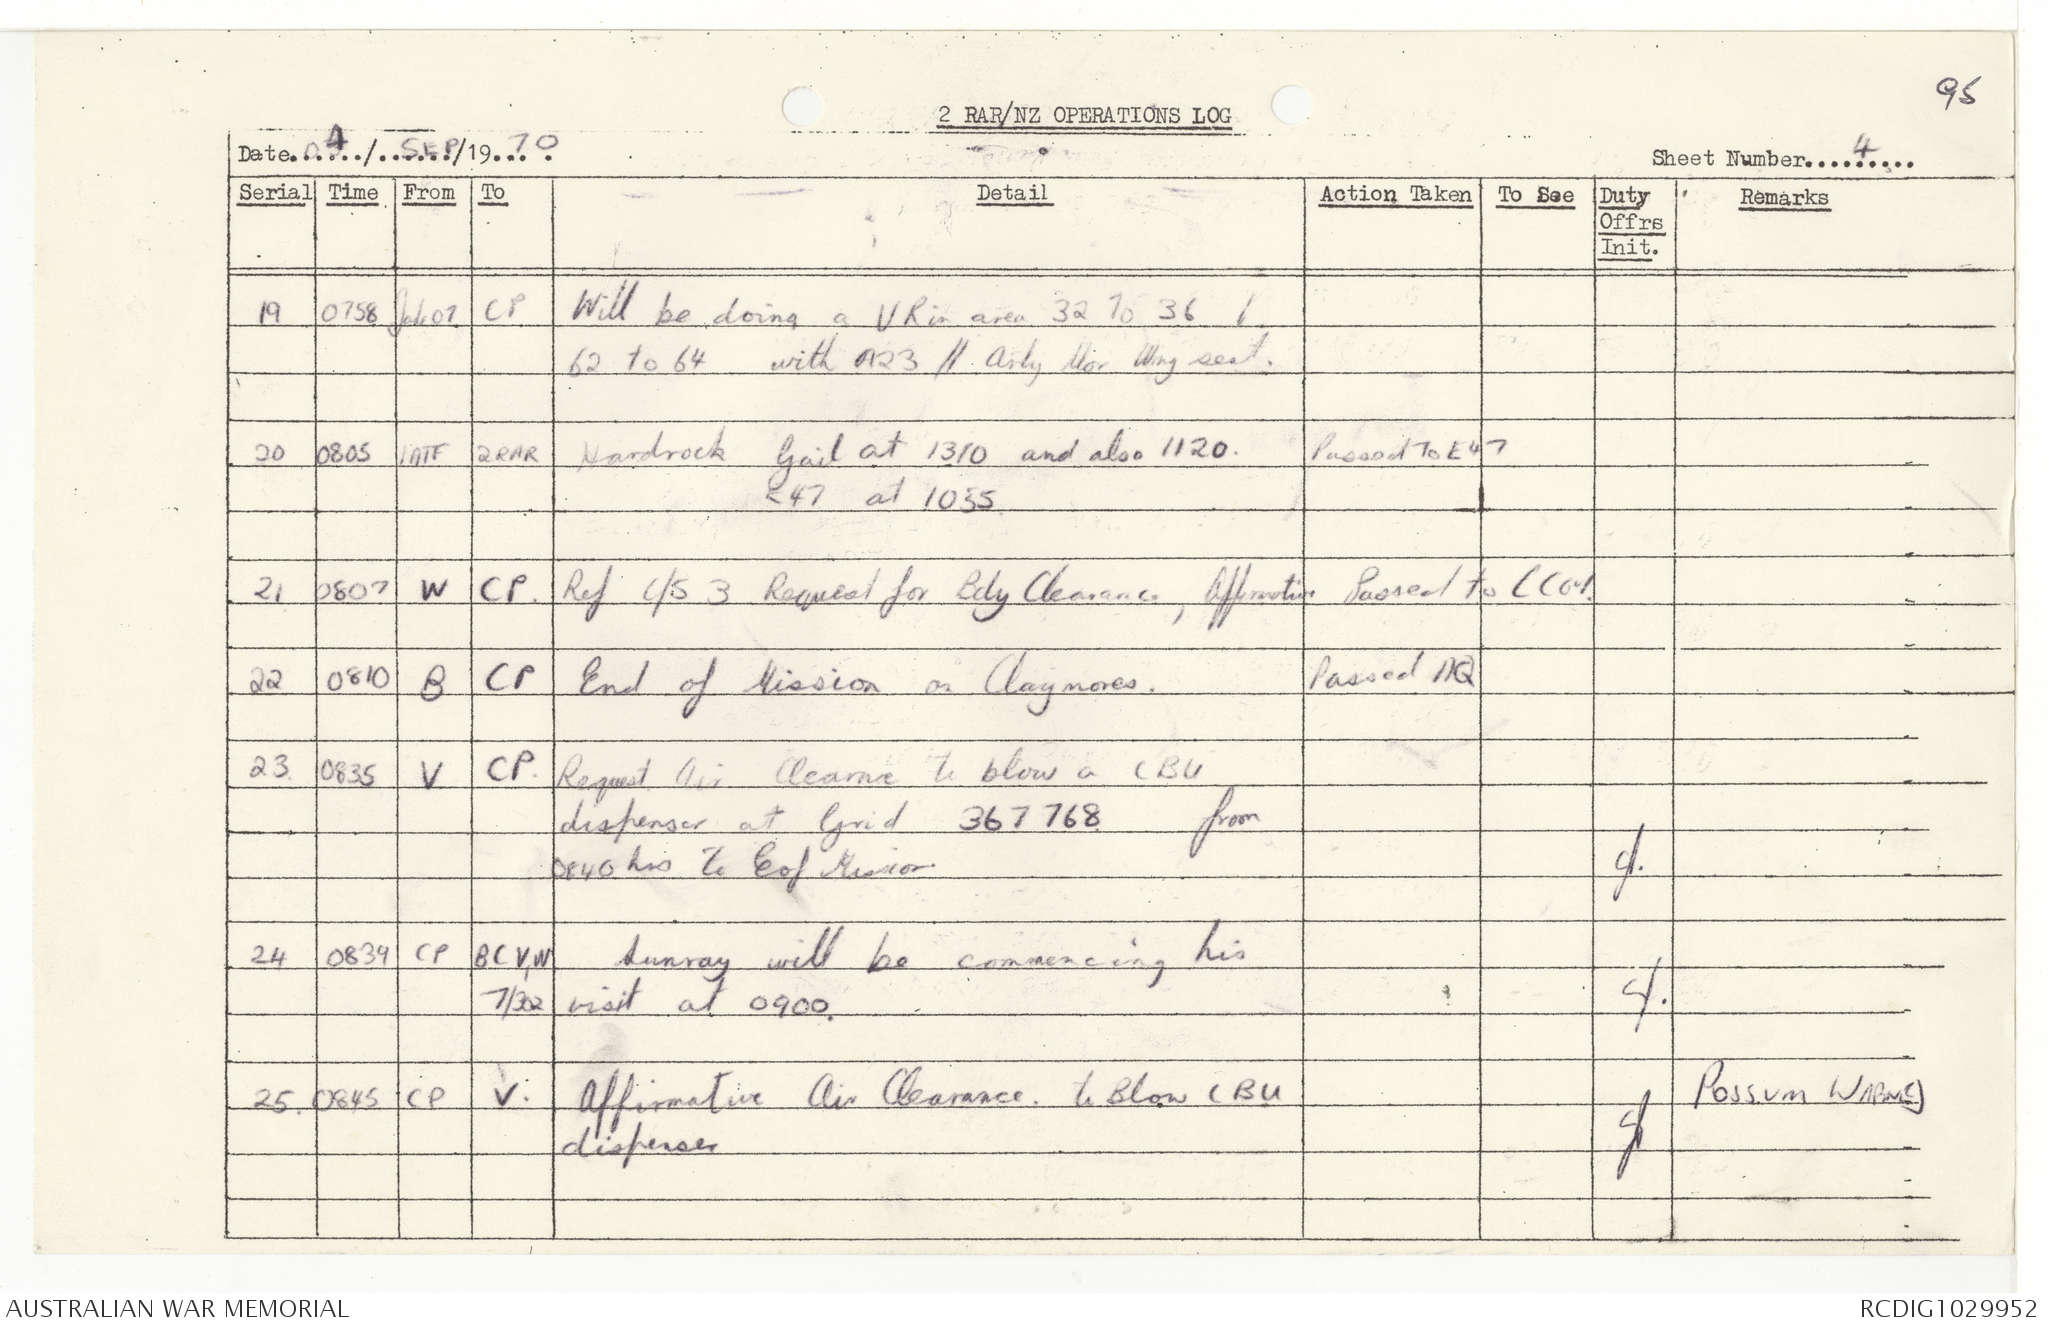 95
2 RAR/NZ OPERATIONS LOG
Date..04../..SEP../19..70.
Sheet Number....4.....
Serial Time From To Detail Action Taken To See Duty Offrs Init. Remarks
19 0758 Jade07 CP Will be doing a VR in area 32 To 36
62 to 64 with A23 // Arty Mor
20 0805 1ATF 2RAR Hardrock Gail at 1310 and also 1120. Passed To E47
E47 at 1035
21 0807 W CP. Ref C/S 3 Request for Bdy Clearance, Affirmative Passed to
22 0810 B CP End of Mission on Claymores. Passed AQ
23. 0835 V CP. Request Air Clearne to blow a CBU
dispenser at Grid 367768 from
0840 hrs to Eof Mission
24 0839 CP BCV,W Sunray will be commencing his
7/302 visit at 0900.
25. 0845 CP V. Affirmative Air Clearance. to Blow CBU POSSUM WARNED
dispenser
AUSTRALIAN WAR MEMORIAL
RCDIG1029952